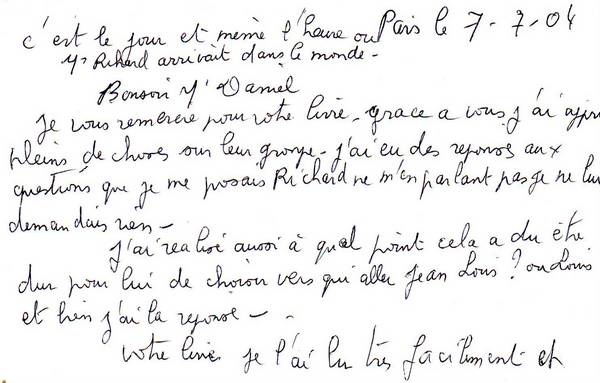 c'est le jour et même l'heure ou Paris le 7-7-04
Mr Richard arrivait dans le monde -
Bonsoir Mr Daniel
Je vous remercie pour votre livre - grace a vous j'ai appris
pleins de choses sur leur groupe - j'ai eu des reponses aux
questions que je me posais Richard ne m'en parlant pas je ne lui
demandais rien -
J'ai realisé aussi à quel point cela a du être
dur pour lui de choisir vers qui aller Jean Louis ? ou Louis
et bien j'ai la reponse -
Votre livre je l'ai lu très facilement et